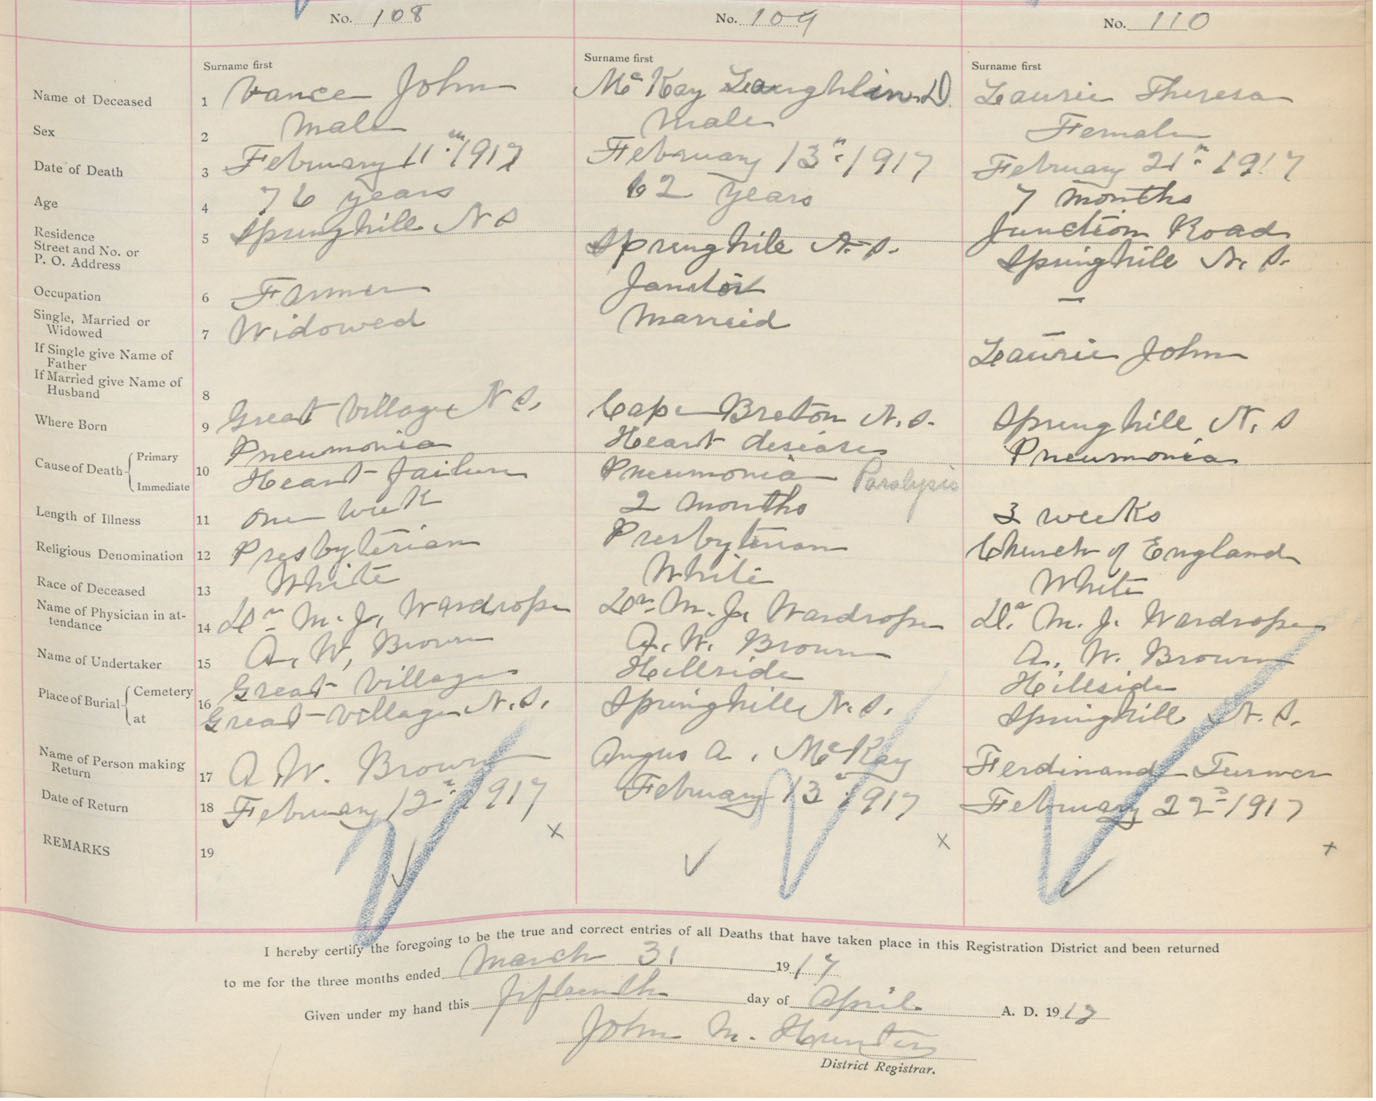 No. 108
No. 109
No. 110
Surname first
Surname first
Surname first
Name of Deceased 1 Vance John
McKay Laughlin D.
Laurie Theresa
Sex 2 Male
Male
Female
Date of Death 3 February 11th 1917
February 13th 1917
February 21st 1917
Age 4 76 years
62 years
7 months
Residence
Street and No. or
P. O. Address 5 Springhill N S
Springhill N. S.
Junction Road
Springhill N. S.
Occupation 6 Farmer
Janitor
—
Single, Married or
Widowed 7 Widowed
Marreid
—
If Single give Name of
Father
If Married give Name of
Husband 8
Laurie John
Where Born 9 Great Village N S.
Cape Breton N. S.
Springhill N. S
Cause of Death
Primary
Immediate
10
Pneumonia
Heart failure
Heart desease
Pneumonia Paralysis
Pneumonia
Length of Illness 11 One week
2 months
3 weeks
Religious Denomination 12 Presbyterian
Presbyterian
Church of England
Race of Deceased 13 White
White
White
Name of Physician in at-
tendance 14 Dr M. J. Wardrope
Dr. M. J. Wardrope
Dr. M. J. Wardrope
Name of Undertaker 15 A. W. Brown
A. W. Brown
A. W. Brown
Place of Burial
Cemetery
at
16
Great Village
Great Village N. S.
Hillside
Springhill N. S.
Hillside
Springhill N. S.
Name of Person making
Return 17 A. W. Brown
Angus A. McKay
Ferdinand Turner
Date of Return 18 February 12th 1917
February 13th 1917
February 22nd 1917
REMARKS 19
x
x
x
I hereby certify the foregoing to be the true and correct entries of all Deaths that have taken place in this Registration District and been returned
to me for the three months ended March 31 1917
Given under my hand this fifteenth day of April A. D. 1917
John M. Hunter
District Registrar.